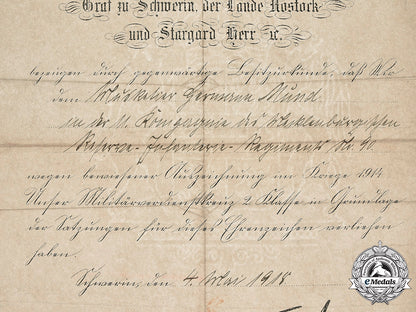 Graf zu Schwerin, der Lande Rostock
und Stargard Herr ꝛc.
bezeugen durch gegenwärtige Besitzurkunde, daß Wir
dem Musketier Hermann Mund
in der 11. Kompagnie des Mecklenburgischen
Reserve-Infanterie-Regiments Nr. 90
wegen bewiesener Auszeichnung im Kriege 1914
Unser Militärverdienstkreuz 2. Klasse in Grundlage
der Satzungen für dieses Ehrenzeichen verliehen
haben.
Schwerin, den 4. Mai 1918
eMedals